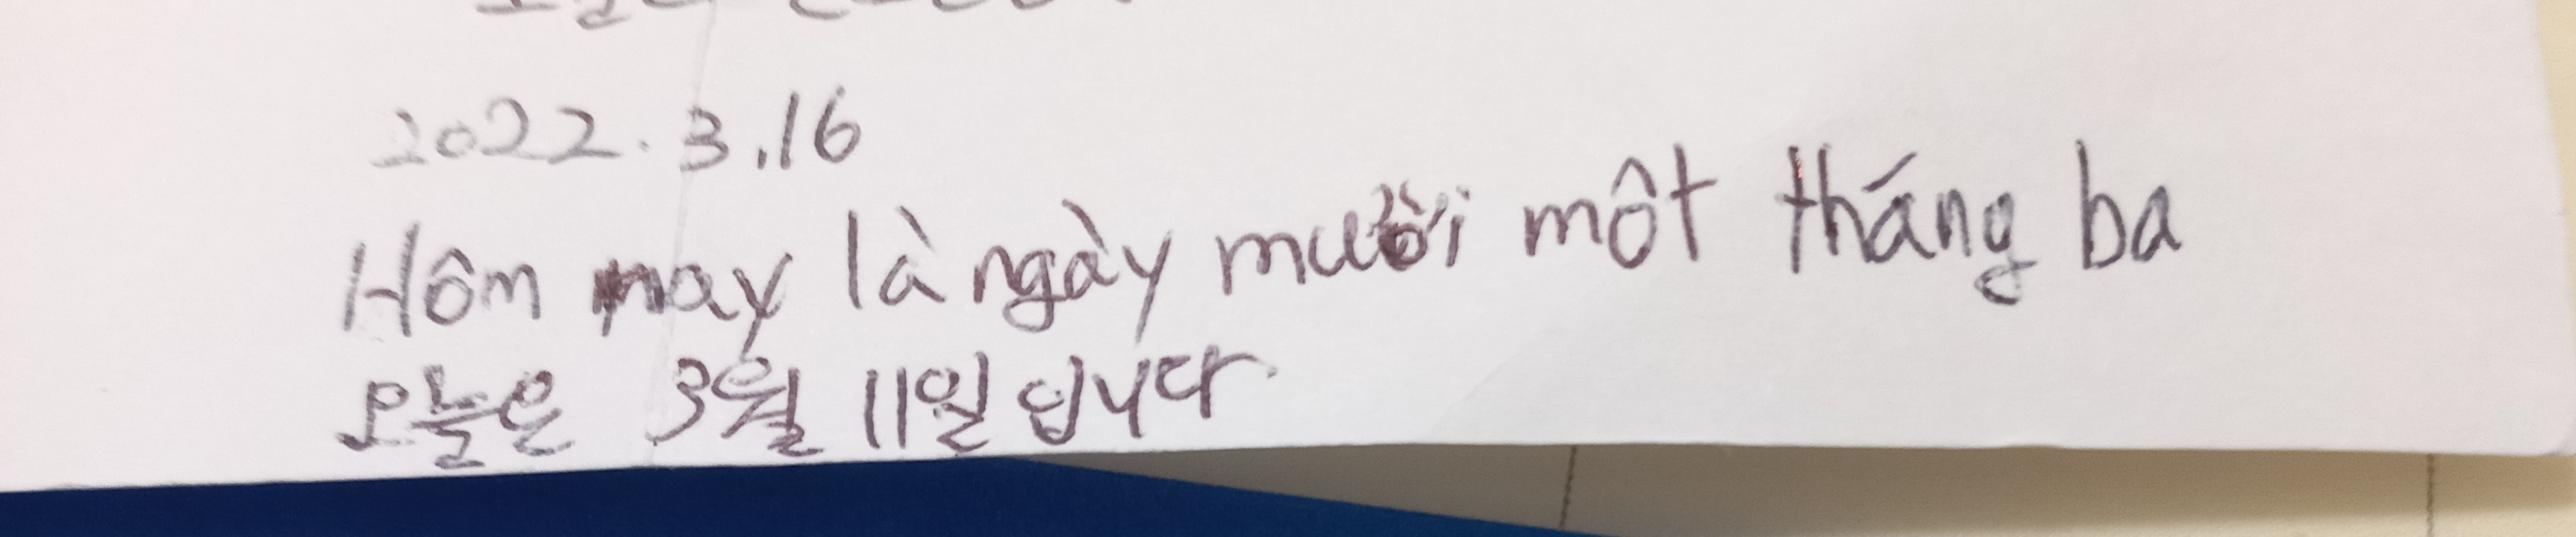 2022.3.16
Hôm nay là ngày mười một tháng ba
오늘은 3월 11일 입니다